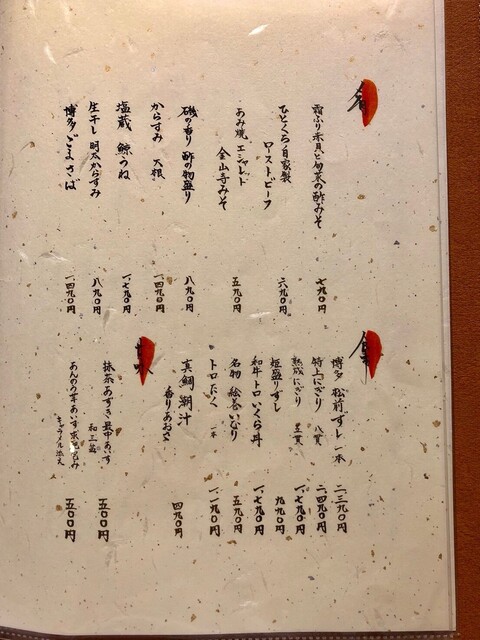 肴
霜ふり赤貝と旬菜の酢みそ 七九〇円
ひとくち自家製
ローストビーフ 六九〇円
あみ焼 エシャレット
金山寺みそ 五九〇円
磯の香り 酢の物盛り 八九〇円
からすみ 大根 一、四九〇円
塩蔵 鯨うね 一、七九〇円
生干し 明太からすみ 八九〇円
博多ごまさば 一、四九〇円
食事
博多 松前ずし 一本 二、三九〇円
特上にぎり 八貫 二、四九〇円
熟成にぎり 五貫 一、七九〇円
姫盛りずし 九九〇円
和牛トロいくら丼 一、七九〇円
名物 絵巻いむり 五九〇円
トロたく 一本 一、一九〇円
真鯛 潮汁
香りあおさ 四九〇円
甘味
抹茶あずき最中あいす
和三盆 五〇〇円
あんのう芋あいす
キャラメル添え 五〇〇円